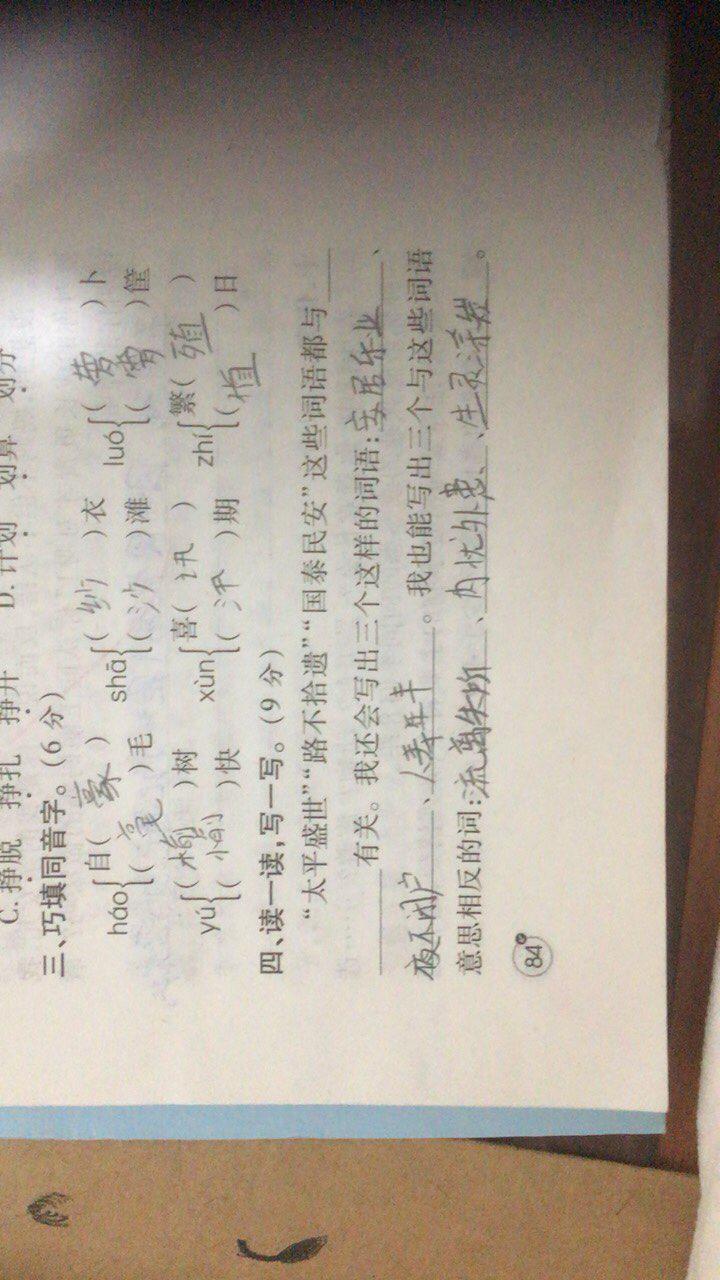 C. 挣脱 挣扎 挣开 D. 计划 划算 划分
三、巧填同音字。(6分)
háo{自(豪) shā{(纱)衣 luó{(萝)卜
(毫)毛 (沙)滩 (箩)筐
yú{(榆)树 xùn{喜(讯) zhí{繁(殖)
(愉)快 (汛)期 (植)日
四、读一读,写一写。(9分)
“太平盛世”“路不拾遗”“国泰民安”这些词语都与
有关。我还会写出三个这样的词语:安居乐业、
夜不闭户、人寿年丰。我也能写出三个与这些词语
意思相反的词:流离失所、内忧外患、生灵涂炭。
84